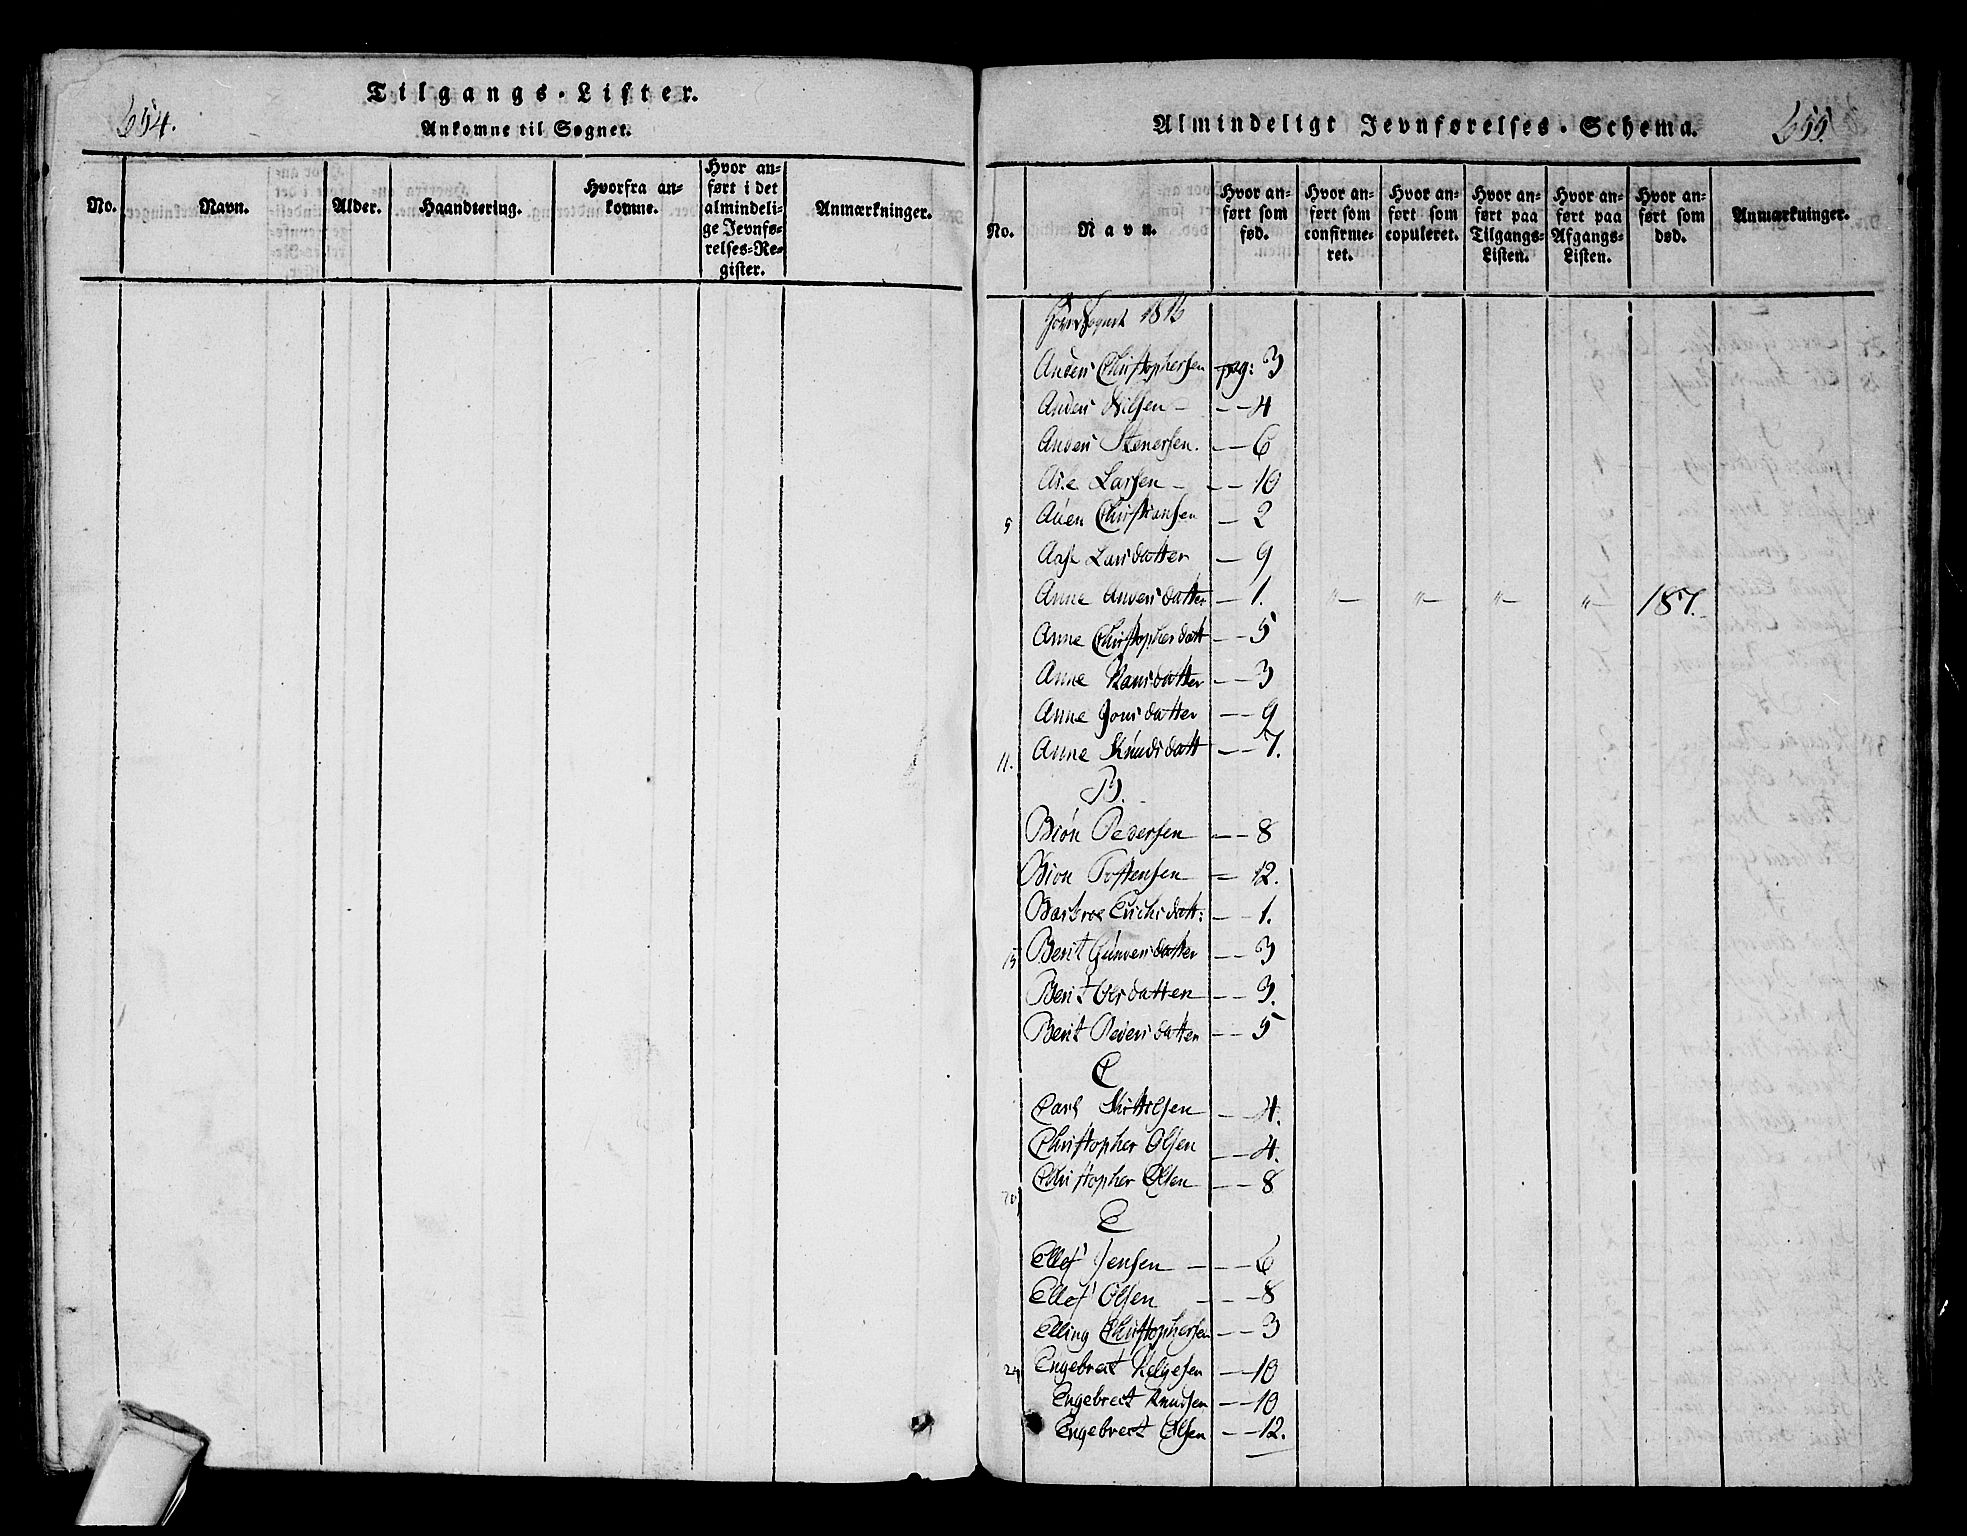 654.
Tilgangs-Lister.
Ankomne til Sognet.
No.
Navn.
Alder.
Haandtering.
Hvorfra an-
komne.
Hvor an-
ført i det
almindeli-
ge Jevnfø-
relses-Re-
gister.
Anmærkninger.
Almindeligt Jevnførelses-Schema.
655.
No.
Navn.
Hvor an-
ført som
fød.
Hvor an-
ført som
confirme-
ret.
Hvor an-
ført som
copuleret.
Hvor an-
ført paa
Tilgangs-
Listen.
Hvor an-
ført paa
Afgangs-
Listen.
Hvor an-
ført som
død.
Anmærkninger.
1816
Anders Christophersen pag: 3
Anders Nilsen - -- 4
Anders Stenersen. -- 6
Larsen - -- 10
5 Christiansen - 2
Aase Larsdatter - 9
Anne Andersdatter - 1. "- "- "- "- 187.
Anne Christophersdatt -- 5
Anne Hansdatter -- 3
Anne Jonsdatter -- 9
11. Anne Knudsdatt -- 7.
B.
Biön Pedersen -- 8
Biön Tostensen - 12.
Barbroe Erichsdatt: -- 1.
15 Berit Gundersdatter -- 3
Berit Olsdatter -- 3.
Berit Pedersdatter -- 5
C
Carl Kittilsen -- 4.
Christopher Olsen -- 4.
20 Christopher Olsen -- 8
E
Ellef Jensen - --- 6
Ellef Olsen --- 8
Elling Christophersen -- 3
24 Engebret Helgesen -- 10
Engebrect Knudsen -- 10
Engebrect Olsen -- 12.